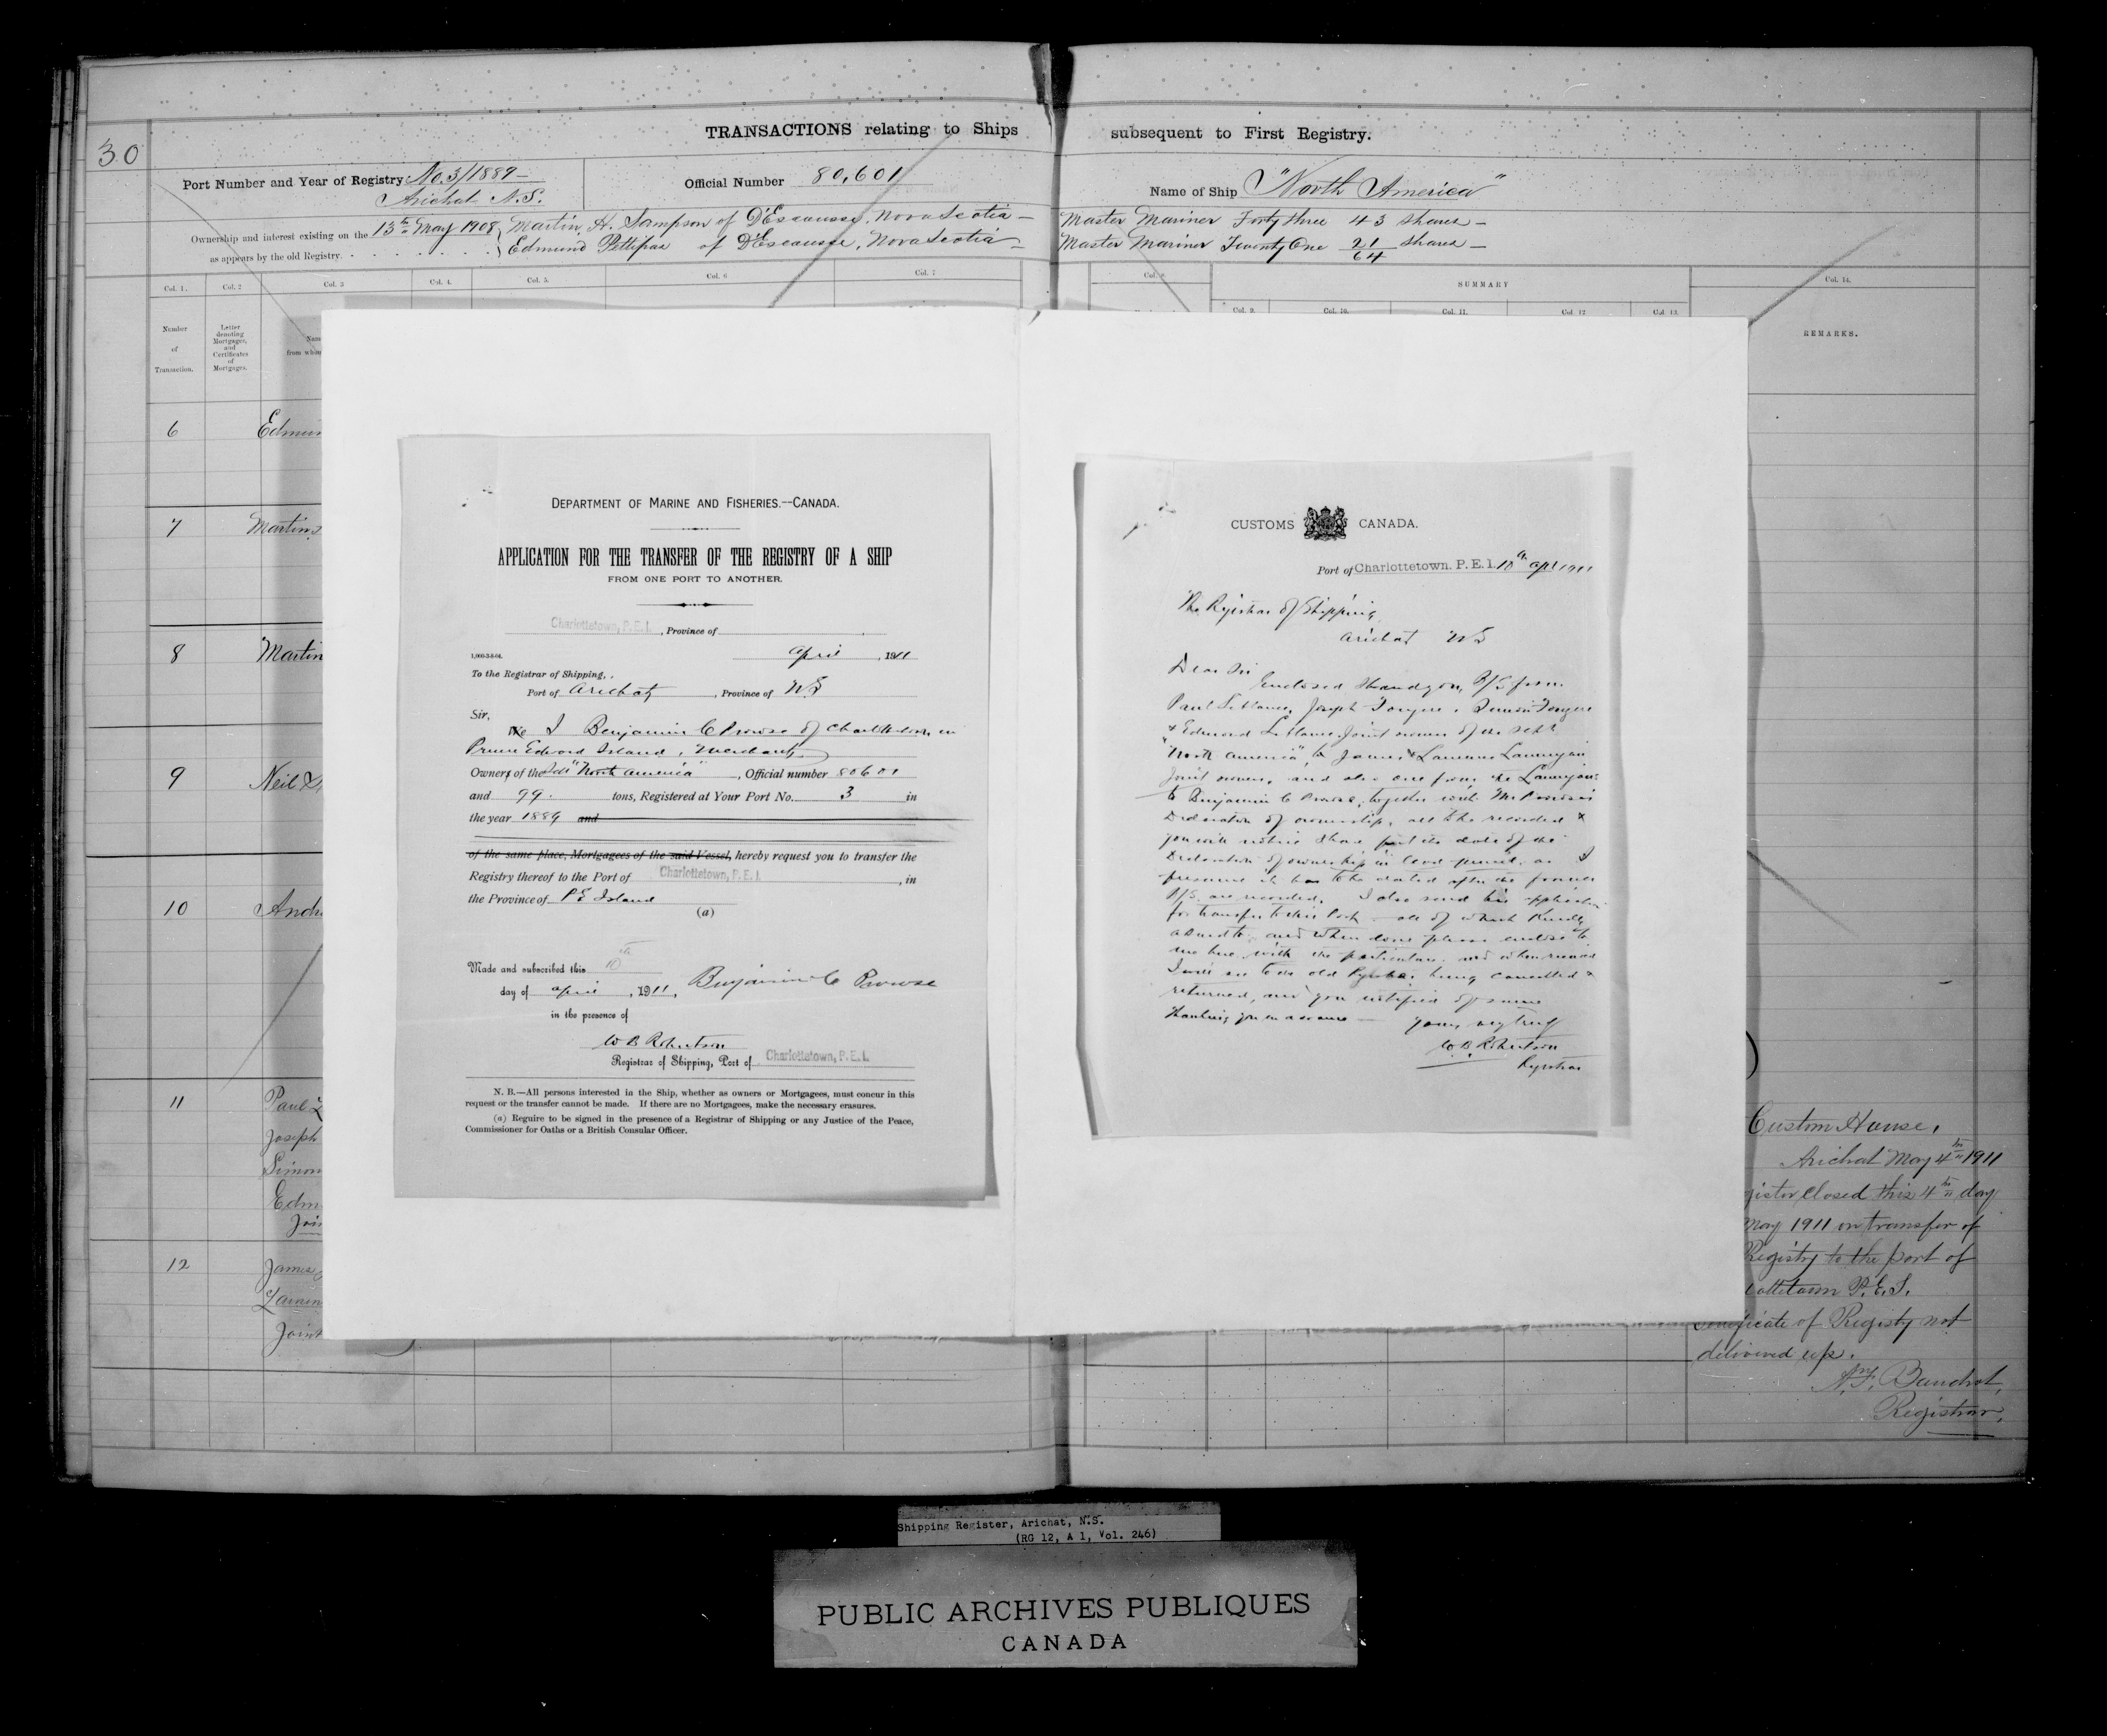 30
TRANSACTIONS relating to Ships subsequent to First Registry.
Port Number and Year of Registry No. 3/1889 —
Arichat N.S.
Official Number 80,601
Name of Ship "North America"
Ownership and interest existing on the 13th May 1908
as appears by the old Registry.
Martin H. Sampson of D'Escousse, Nova Scotia — Master Mariner Forty three 43 shares —
Edmund Pettipas of D'Escousse, Nova Scotia — Master Mariner Twenty One 21/64 shares —
Col. 1. Col. 2 Col. 3 Col. 4. Col. 5. Col. 6 Col. 7
SUMMARY
Col. 9. Col. 10. Col. 11. Col. 12 Col. 13. Col. 14.
Number of Transaction.
Letter denoting Mortgages, and Certificates of Mortgages.
from whom
REMARKS.
6
7 Martin
8 Martin
9 Neil
10
11 Paul
Joseph
Simon
12 James
DEPARTMENT OF MARINE AND FISHERIES.--CANADA.
APPLICATION FOR THE TRANSFER OF THE REGISTRY OF A SHIP
FROM ONE PORT TO ANOTHER.
Charlottetown, P.E.I. , Province of
April , 1911
To the Registrar of Shipping,
Port of Arichat , Province of N.S
Sir,
We I Benjamin C Prowse of Charlottetown in
Prince Edward Island, Merchant
Owners of the Sch "North America" , Official number 80601
and 99 tons, Registered at Your Port No. 3 in
the year 1889 and
of the same place, Mortgagees of the said Vessel, hereby request you to transfer the
Registry thereof to the Port of Charlottetown, P.E.I. , in
the Province of P E Island
(a)
Made and subscribed this 10th
day of April , 1911, Benjamin C Prowse
in the presence of
W B Robertson
Registrar of Shipping, Port of Charlottetown, P.E.I.
N. B.—All persons interested in the Ship, whether as owners or Mortgagees, must concur in this
request or the transfer cannot be made. If there are no Mortgagees, make the necessary erasures.
(a) Require to be signed in the presence of a Registrar of Shipping or any Justice of the Peace,
Commissioner for Oaths or a British Consular Officer.
CUSTOMS CANADA.
Port of Charlottetown. P. E. I. 10th Apl 1911
The Registrar of Shipping
Arichat NS
Dear Sir
Enclosed I hand you B/S from
Paul LeBlanc, Joseph Fougere, Simon Fougere
& Edmond LeBlanc Joint owners of the Schr
"North America", to James & Laurence Lannigan
Joint owners, and also one from the Lannigans
to Benjamin C Prowse, together with Mr Prowse's
Declaration of ownership, all to be recorded &
you will notice I have put the date of the
Declaration of ownership in lead pencil, as I
presume it has to be dated after the former
B/S are recorded. I also send his application
for transfer to this Port all of which kindly
attend to and when done please enclose to
me here with the particulars and when received
I will see to the old Register being cancelled &
returned, and you notified of same
Thanking you in advance — yours very truly
W. B. Robertson
Registrar
Custom House,
Arichat May 4th 1911
closed this 4th day
May 1911 on transfer of
Registry to the port of
P.E.I.
Certificate of Registry not
delivered up.
Registrar.
Shipping Register, Arichat, N.S.
(RG 12, A 1, Vol. 246)
PUBLIC ARCHIVES PUBLIQUES
CANADA